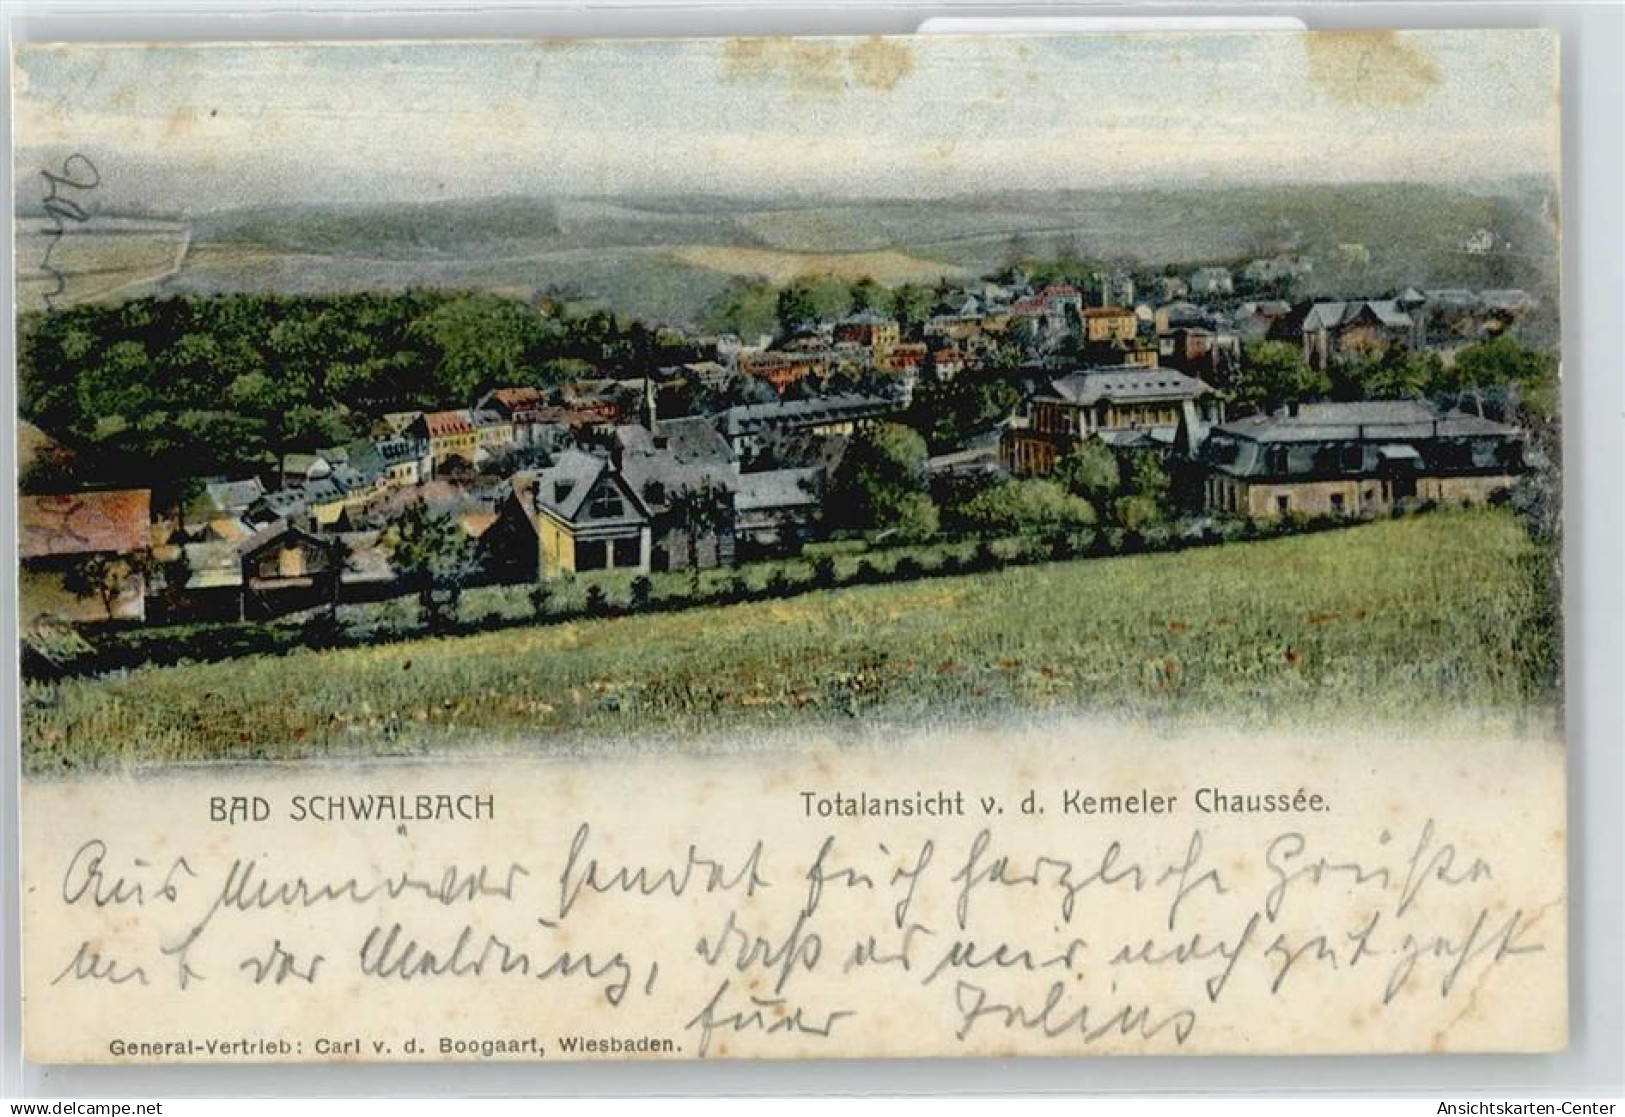 BAD SCHWALBACH
Totalansicht v. d. Kemeler Chaussée.
Aus Manöver sendet Euch herzliche Grüße
mit der Meldung, daß es mir noch gut geht
Euer Julius
General-Vertrieb: Carl v. d. Boogaart, Wiesbaden.
delcampe.net
Ansichtskarten-Center